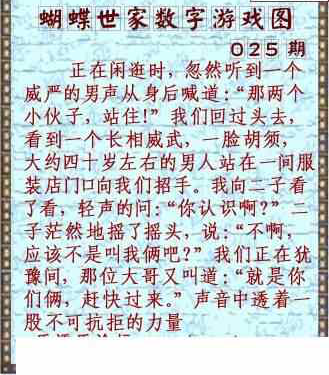 蝴蝶世家数字游戏图
025 期
正在闲逛时，忽然听到一个
威严的男声从身后喊道：“那两个
小伙子，站住！”我们回过头去，
看到一个长相威武，一脸胡须，
大约四十岁左右的男人站在一间服
装店门口向我们招手。我向二子看
了看，轻声的问：“你认识啊？”二
子茫然地摇了摇头，说：“不啊，
应该不是叫我俩吧？”我们正在犹
豫间，那位大哥又叫道：“就是你
们俩，赶快过来。”声音中透着一
股不可抗拒的力量